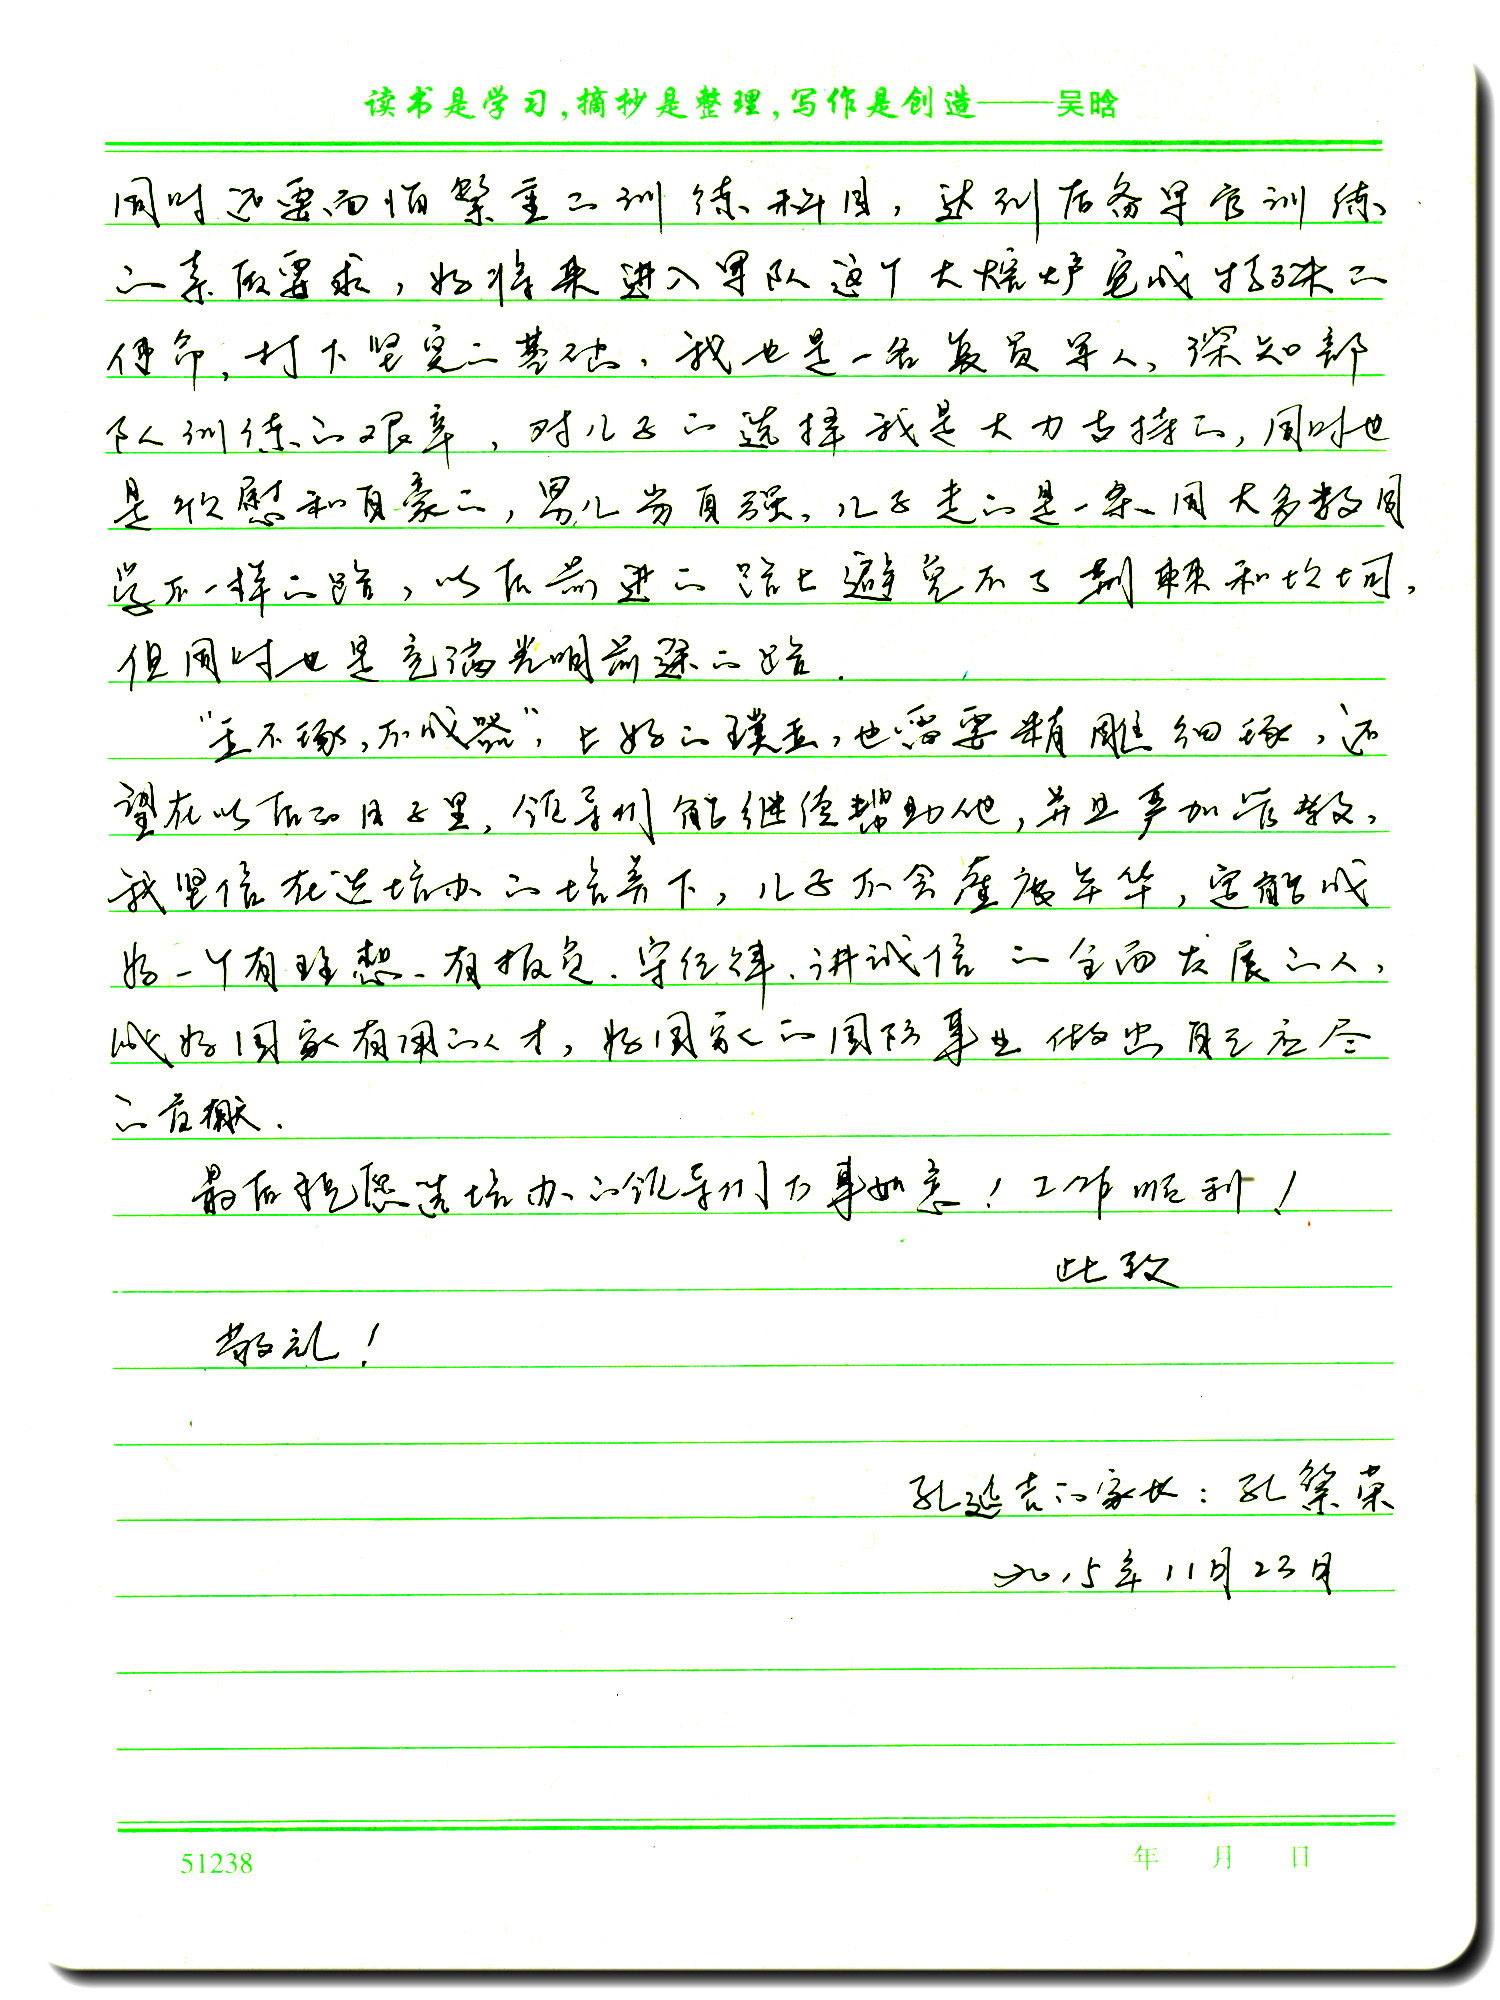 读书是学习,摘抄是整理,写作是创造——吴晗
同时还要面临繁重的训练科目，达到后备军官训练
的素质要求，为将来进入军队这个大熔炉完成特殊的
使命，打下坚实的基础，我也是一名复员军人，深知部
队训练的艰辛，对儿子的选择我是大力支持的，同时也
是欣慰和自豪的，男儿当自强，儿子走的是一条同大多数同
学不一样的路，以后前进的路上避免不了荆棘和坎坷，
但同时也是充满光明前途的路．
“玉不琢，不成器”，上好的璞玉，也需要精雕细琢，还
望在以后的日子里，领导们能继续帮助他，并且严加管教，
我坚信在选培办的培养下，儿子不会虚度年华，定能成
为一个有理想、有报负、守纪律、讲诚信的全面发展的人，
成为国家有用的人才，为国家的国防事业做出自己应尽
的贡献．
最后祝愿选培办的领导们万事如意！工作顺利！
此致
敬礼！
孔延吉的家长：孔繁荣
2015年11月23日
51238
年 月 日